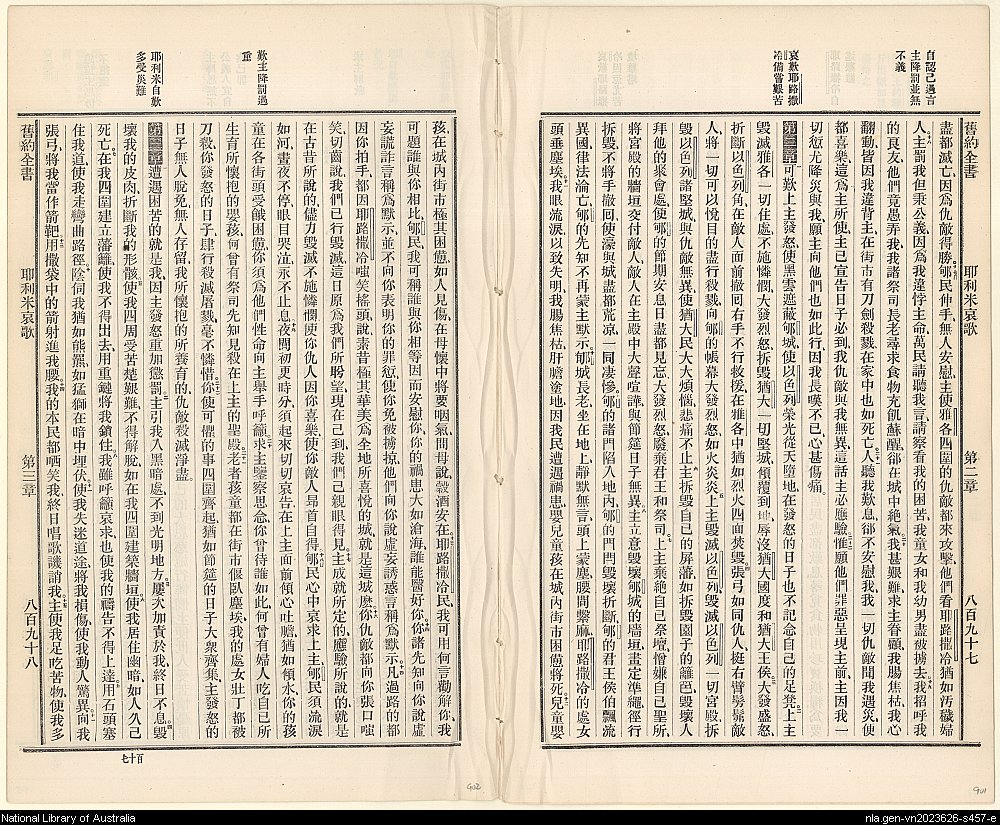 自認己過言
主降罰並無
不義
哀歎耶路撒
冷備嘗艱苦
舊約全書 耶利米哀歌 第二章 八百九十七
盡都滅亡因爲仇敵得勝郇民伸手無人安慰主使雅各四圍的仇敵都來攻擊他們看耶路撒冷猶如污穢婦
人主罰我但秉公義因爲我違悖主命萬民請聽我言請察看我的困苦我童女和我幼男盡被擄去我招呼我
的良友他們竟愚弄我我諸祭司長老尋求食物充飢蘇醒卻在城中絕氣我甚艱難求主眷顧我腸焦枯我心
翻動皆因我違背主在街市有刀劍殺戮在家中也如死亡人聽我歎息卻不安慰我我一切仇敵聞我遇災便
都喜樂這爲主所使主已宣告日子必到我仇敵與我無異這話主必應驗惟願他們罪惡呈現主前主因我一
切愆尤降災與我願主向他們也如此行因我長嘆不已心甚傷痛
第二章可歎上主發怒使黑雲遮蔽郇城使以色列榮光從天墮地在發怒的日子也不記念自己的足凳上主
毀滅雅各一切住處不施憐憫大發烈怒拆毀猶大一切堅城傾覆到地辱沒猶大國度和猶大王侯大發盛怒
折斷以色列角在敵人面前撤回右手不行救援在雅各中猶如烈火四面焚毀張弓如同仇人挺右臂髣髴敵
人將一切可以悅目的盡行殺戮向郇的帳幕大發烈怒如火炎炎上主毀滅以色列毀滅以色列一切宮殿拆
毀以色列諸堅城與仇敵無異使猶大民大大煩惱悲痛不止主拆毀自己的屏藩如拆毀園子的籬笆毀壞人
拜他的聚會處使郇的節期安息日盡都見忘大發烈怒廢棄君王和祭司上主棄絕自己祭壇憎嫌自己聖所
將宮殿的牆垣交付敵人敵人在主殿中大聲喧譁與節筵日子無異主立意毀壞郇城的墻垣畫定準繩逕行
拆毀不將手撤回使濠與城盡都荒涼一同凄慘郇的諸門陷入地內郇的門閂毀壞折斷郇的君王侯伯飄流
異國律法淪亡郇的先知不再蒙主默示郇城長老坐在地上靜默無言頭上蒙塵腰間繫麻耶路撒冷的處女
頭垂塵埃我眼流淚以致失明我腸焦枯肝膽塗地因我民遭遇禍患嬰兒童孩在城內街市困憊將死兒童嬰
歎主降罰過
重
耶利米自歎
多受災難
孩在城內街市極其困憊如人見傷在母懷中將要咽氣問母說穀酒安在耶路撒冷民我可用何言勸解你我
可題誰與你相比郇民我可稱誰與你相等因而安慰你你的禍患大如滄海誰能醫好你你諸先知向你說虛
妄謊詐言稱爲默示並不向你表明你的罪愆使你免被擄掠他們向你說虛妄誘惑言稱爲默示凡過路的都
因你拍手都因耶路撒冷嗤笑搖頭說素昔極其華美爲全地所喜悅的城就是這城麼你仇敵都向你張口嗤
笑切齒說我們已行毀滅這日原爲我們所盼望現在已到我們已親眼得見主成就所定的應驗所說的就是
在古昔所說的儘力毀滅不施憐憫使你仇人因你喜樂使你敵人昂首自得郇民心中哀求上主郇民須流淚
如河晝夜不停眼目哭泣永不止息夜間初更時分須起來切切哀告在上主面前傾心吐膽猶如傾水你的孩
童在各街頭受餓困憊你須爲他們性命向主舉手呼籲求主鑒察思念你曾待誰如此何曾有婦人吃自己所
生育所懷抱的嬰孩何曾有祭司先知見殺在上主的聖殿老者孩童都在街市偃臥塵埃我的處女壯丁都被
刀殺你發怒的日子肆行殺滅屠戮毫不憐惜你使可懼的事四圍齊起猶如節筵的日子大衆齊集主發怒的
日子無人脫免無人存留我所懷抱的所養育的仇敵殺滅淨盡
第三章遭遇困苦的就是我因主發怒重加懲罰主引我入黑暗處不到光明地方屢次加責於我終日不息毀
壞我的皮肉折斷我的形骸使我四周受苦楚艱難不得解脫如在我四圍建築牆垣使我居住幽暗如人久已
死亡在我四圍建立藩籬使我不得出去用重鏈將我鎖住我雖呼籲哀求也使我的禱告不得上達用石頭塞
住我道使我走彎曲路徑陰伺我猶如能羆如猛獅在暗中埋伏使我失迷道途將我損傷使我動人驚異向我
張弓將我當作箭靶用撒袋中的箭射進我腰我的本民都哂笑我終日唱歌譏誚我主使我足吃苦物使我多
舊約全書 耶利米哀歌 第三章 八百九十八
百十七
902
901
National Library of Australia
nla.gen-vn2023626-s457-e